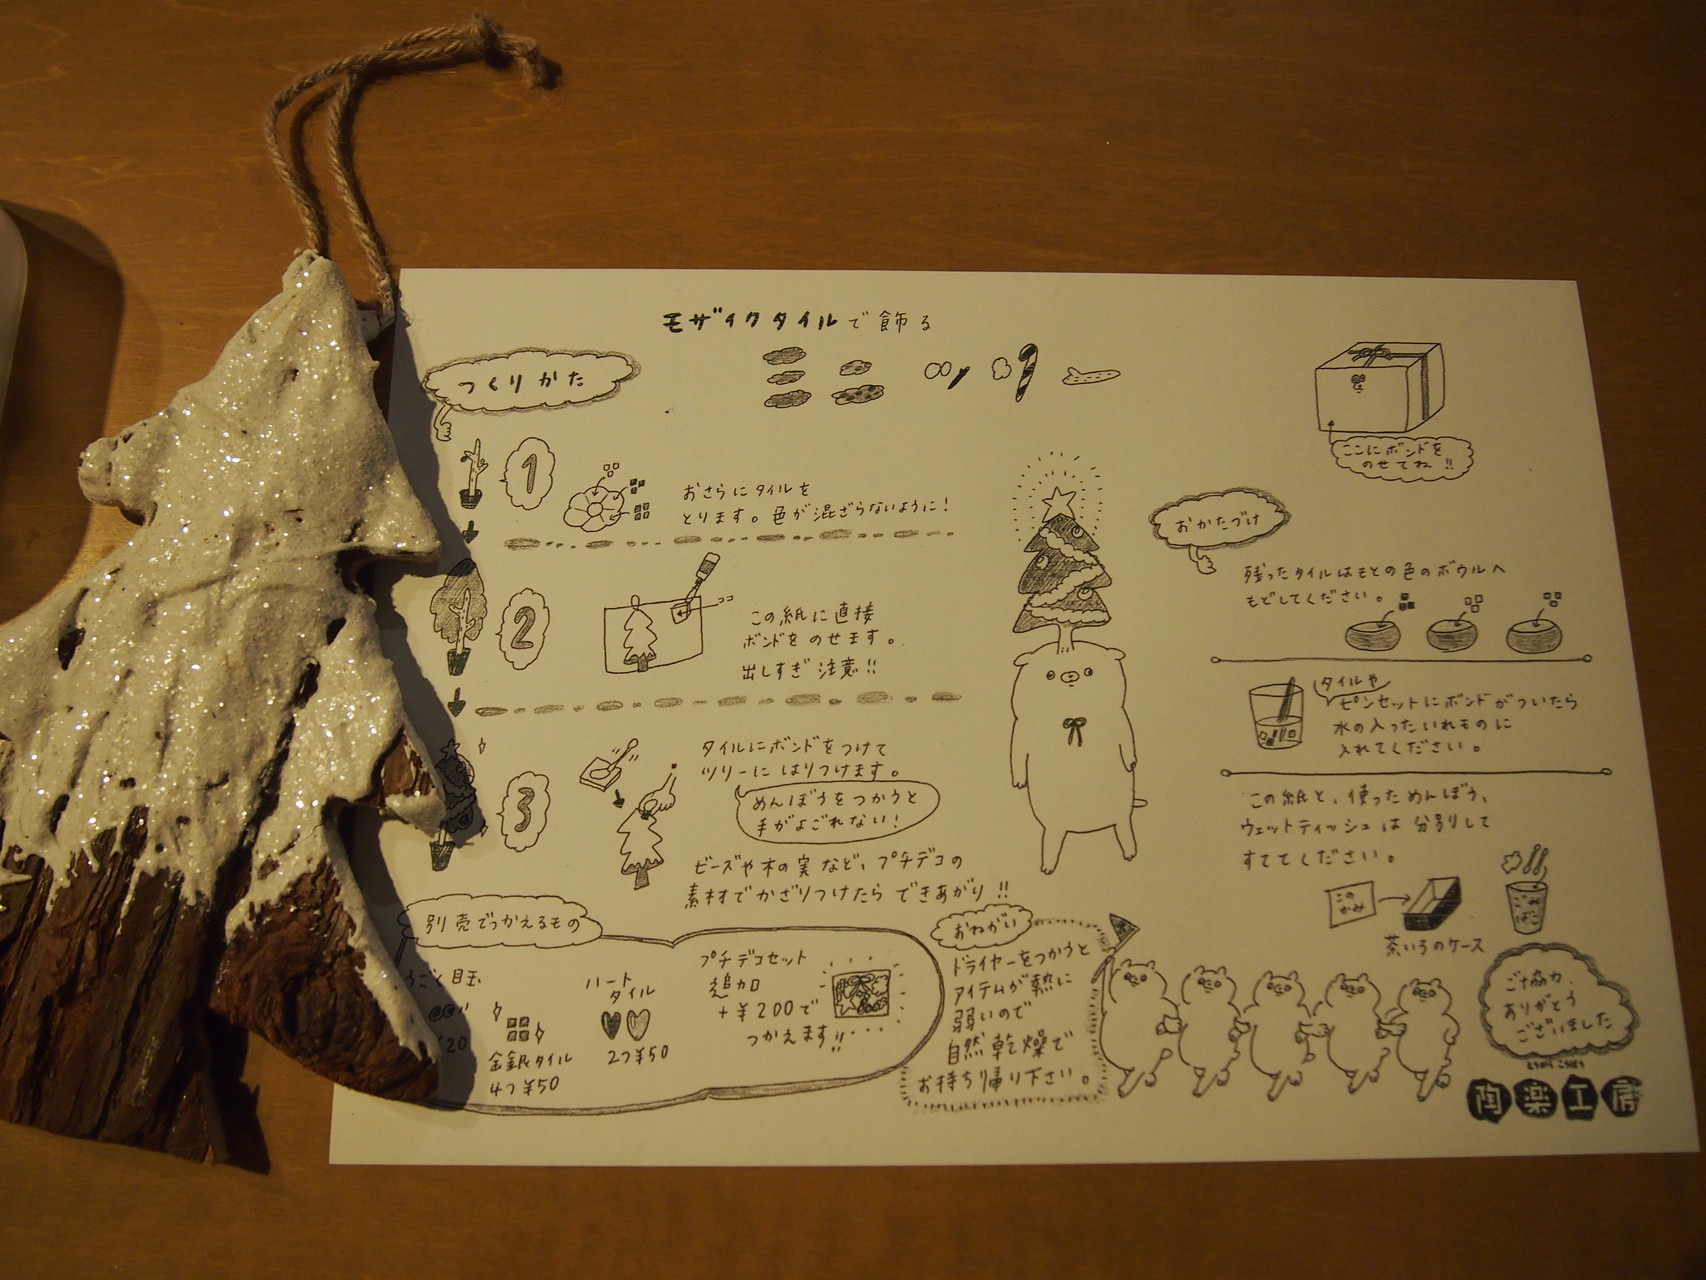 モザイクタイルで飾る
つくりかた
1
おさらにタイルを
とります。色が混ざらないように!
2
この紙に直接
ボンドをのせます。
出しすぎ注意!!
3
タイルにボンドをつけて
ツリーにはりつけます。
めんぼうをつかうと
手がよごれない!
ビーズや木の実など、プチデコの
素材でかざりつけたらできあがり!!
別売でつかえるもの
うごく目玉
¥20
金銀タイル
4つ¥50
ハート
タイル
2つ¥50
プチデコセット
追加
+¥200で
つかえます!!
おねがい
ドライヤーをつかうと
アイテムが熱に
弱いので
自然乾燥で
お持ち帰り下さい。
ここにボンドを
のせてね!!
おかたづけ
残ったタイルはもとの色のボウルへ
もどしてください。
タイルや
ピンセットにボンドがついたら
水の入ったいれものに
入れてください。
この紙と、使っためんぼう、
ウェットティッシュは分別して
すててください。
この
かみ
茶いろのケース
ご協力
ありがとう
ございました
陶楽工房